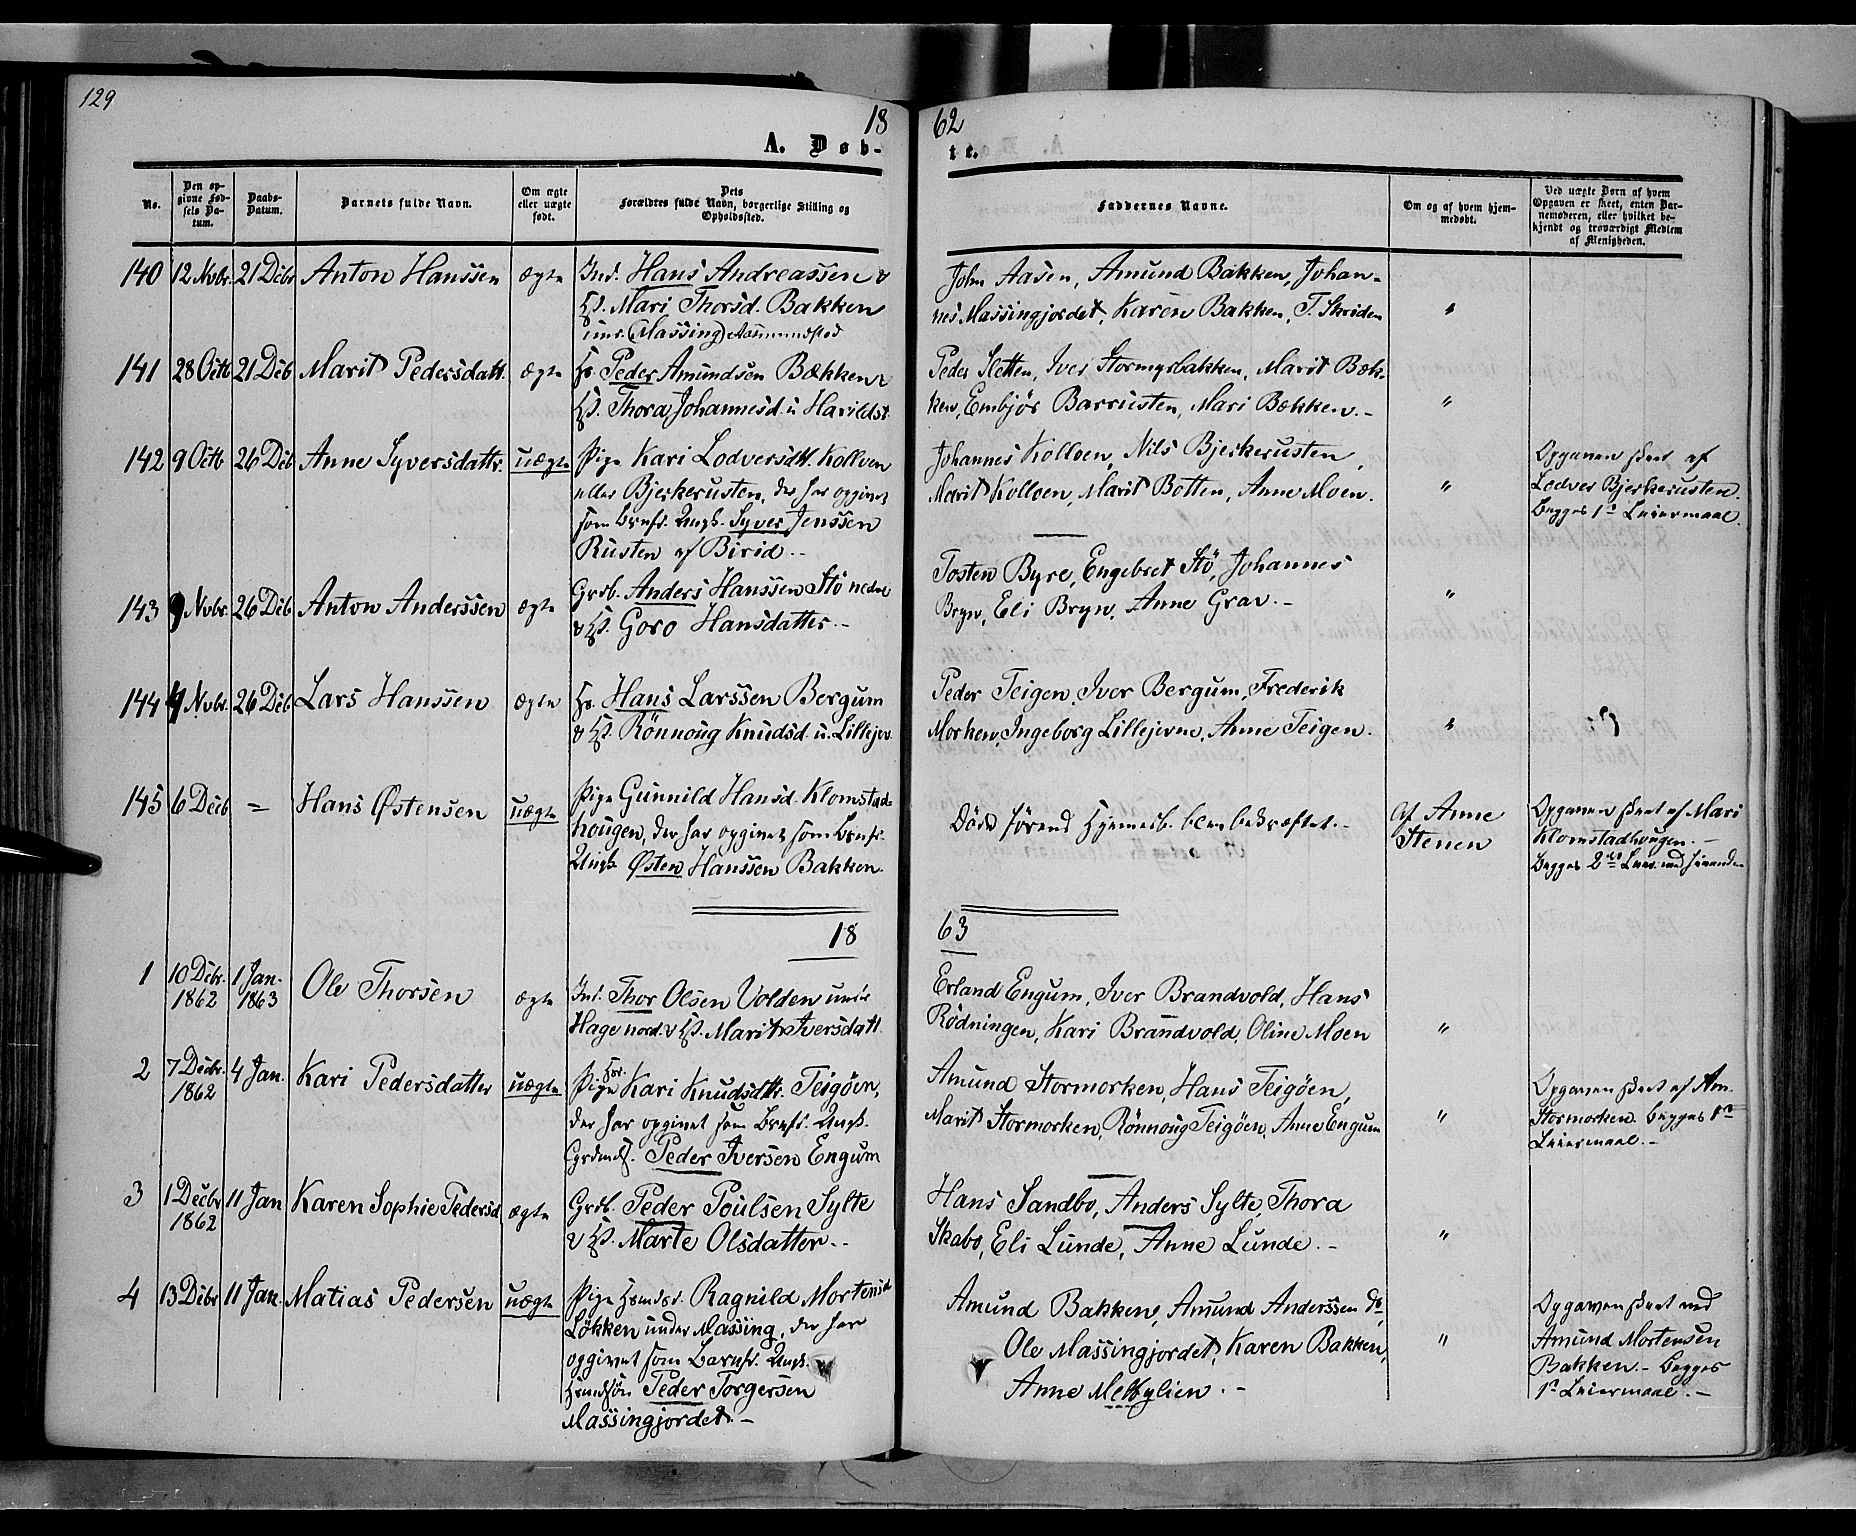 129
18
62
A. Døb-
te.
No.
Den op-
givne Fød-
sels Da-
tum.
Daabs-
Datum.
Barnets fulde Navn.
Om ægte
eller uægte
født.
Dets
Forældres fulde Navn, borgerlige Stilling og
Opholdssted.
Faddernes Navne.
Om og af hvem hjem-
medøbt.
Ved uægte Børn af hvem
Opgaven er skeet, enten Bar-
nemoderen, eller hvilket be-
kjendt og troværdigt Medlem
af Menigheden.
140 12 Novbr. 21 Decbr Anton Hanssen ægte Ind. Hans Andreassen &
Hst. Mari Thorsd. Bakken
unr. (Massing) Aasmundstad
John Aasen, Amund Bakken, Johan-
nes Massingjordet, Karen Bakken, T. Skriden "
141 28 Octb 21 Dcb Marit Pedersdatt. ægte Hs. Peder Amundsen Bækken &
Hst. Thora Johannesd. u Harildst.
Peder Sletten, Iver Stormyrbakken, Marit Bæk-
ken, Embjør Barrusten, Mari Bækken.- "
142 9 Octb 26 Dcb Anne Syversdattr. uægte Pige Kari Lodversdtt. Kolloen
eller Bjerkerusten, der har opgivet
som Brnfr. Ungk. Syver Jenssen
Rusten af Birid.-
Johannes Kolloen, Nils Bjerkerusten,
Marit Kolloen, Marit Botten, Anne Moen. "
Opgaven skeet af
Lodver Bjerkerusten.
Begges 1ste Leiermaal.
143 9 Novbr. 26 Dcb Anton Anderssen ægte Grdb. Anders Hanssen Stö nedre
& Hst. Goro Hansdatter.-
Tosten Byre, Engebret Stö, Johannes
Bryn, Eli Bryn, Anne Grav.- "
144 4 Novbr. 26 Dcb. Lars Hanssen ægte Hs. Hans Larssen Bergum
& Hst. Rönnoug Knudsd. u. Lillejev.
Peder Teigen, Iver Bergum, Frederik
Morken, Ingeborg Lillejevne, Anne Teigen. "
145 6 Decb = Hans Østensen uægte Pige Gunnild Hansd. Klomstad-
hougen, der har opgivet som Brnfr.
Ungk. Østen Hanssen Bakken.
Döde förend Hjemmedb. blev bekræftet.-
Af Anne
Stenen
Opgaven skeet af Mari
Klomstadhougen.-
Begges 2det Leierm.
18
63
1 10 Decbr. 1862 1 Jan. 1863 Ole Thorsen ægte Ind. Thor Olsen Volden under
Hage nord. & Hst. Marit Iversdatt.
Erland Engum, Iver Brandvold, Hans
Rödningen, Kari Brandvold, Oline Moen "
2 7 Decbr. 1862 4 Jan. Kari Pedersdatter uægte Pige Kari Knudsdtr. Teigöen,
der har opgivet som Brnfr. Ungk.
Grdmds. Peder Iversen Engum
Amund Stormorken, Hans Teigöen,
Marit Stormorken, Rönnoug Teigöen, Anne Engum "
Opgaven skeet af Am.
Stormorken. Begges 1ste
Leiermaal.-
3 1 Decbr 1862 11 Jan Karen Sophie Pedersd ægte Grdb. Peder Poulsen Sylte
& Hst. Marte Olsdatter.-
Hans Sandbo, Anders Sylte, Thora
Skabo, Eli Lunde, Anne Lunde.- "
4 13 Decbr 11 Jan. Matias Pedersen uægte Pige Hsmdsr. Ragnild Mortensd
Løkken under Massing, der har
opgivet som Barnfr. Ungk.
Hsmdsön Peder Torgersen
Massingjordet.-
Amund Bakken, Amund Anderssen do,
Ole Massingjordet, Karen Bakken,
Anne Methylien.- "
Opgaven skeet ved
Amund Mortensen
Bakken.- Begges
1ste Leiermaal.-